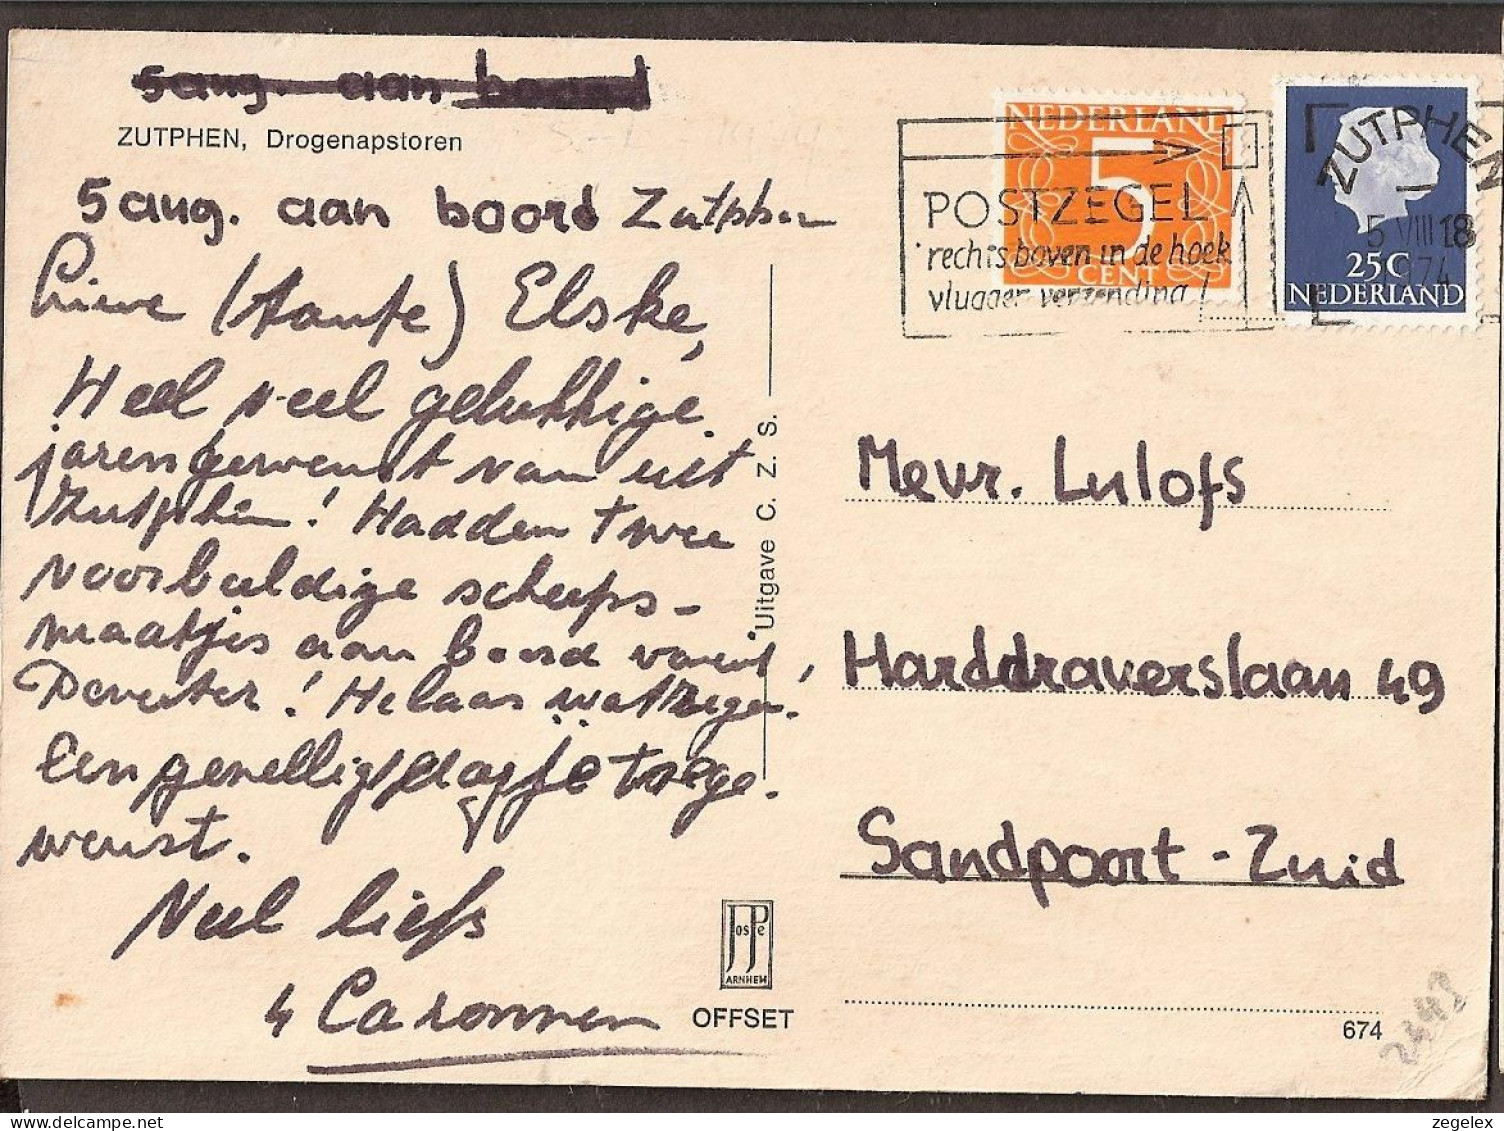 5 aug. aan boord
ZUTPHEN, Drogenapstoren
5 aug. aan boord Zutphen
Lieve (tante) Elske,
Heel veel gelukkige
jaren gewenst van uit
Zutphen! Hadden twee
voorbeeldige scheeps-
maatjes aan boord vanuit
Deventer! Helaas wat regen!
Een gezellig dagje toege-
wenst.
Veel liefs
4
Uitgave C. Z. S.
JosPe
ARNHEM
OFFSET
NEDERLAND
5
CENT
25C
NEDERLAND
POSTZEGEL
rechts boven in de hoek
vlugger verzending!
ZUTPHEN
5 VIII 18
974
Mevr. Lulofs
Harddraverslaan 49
Sandpoort - Zuid
674
zegelex